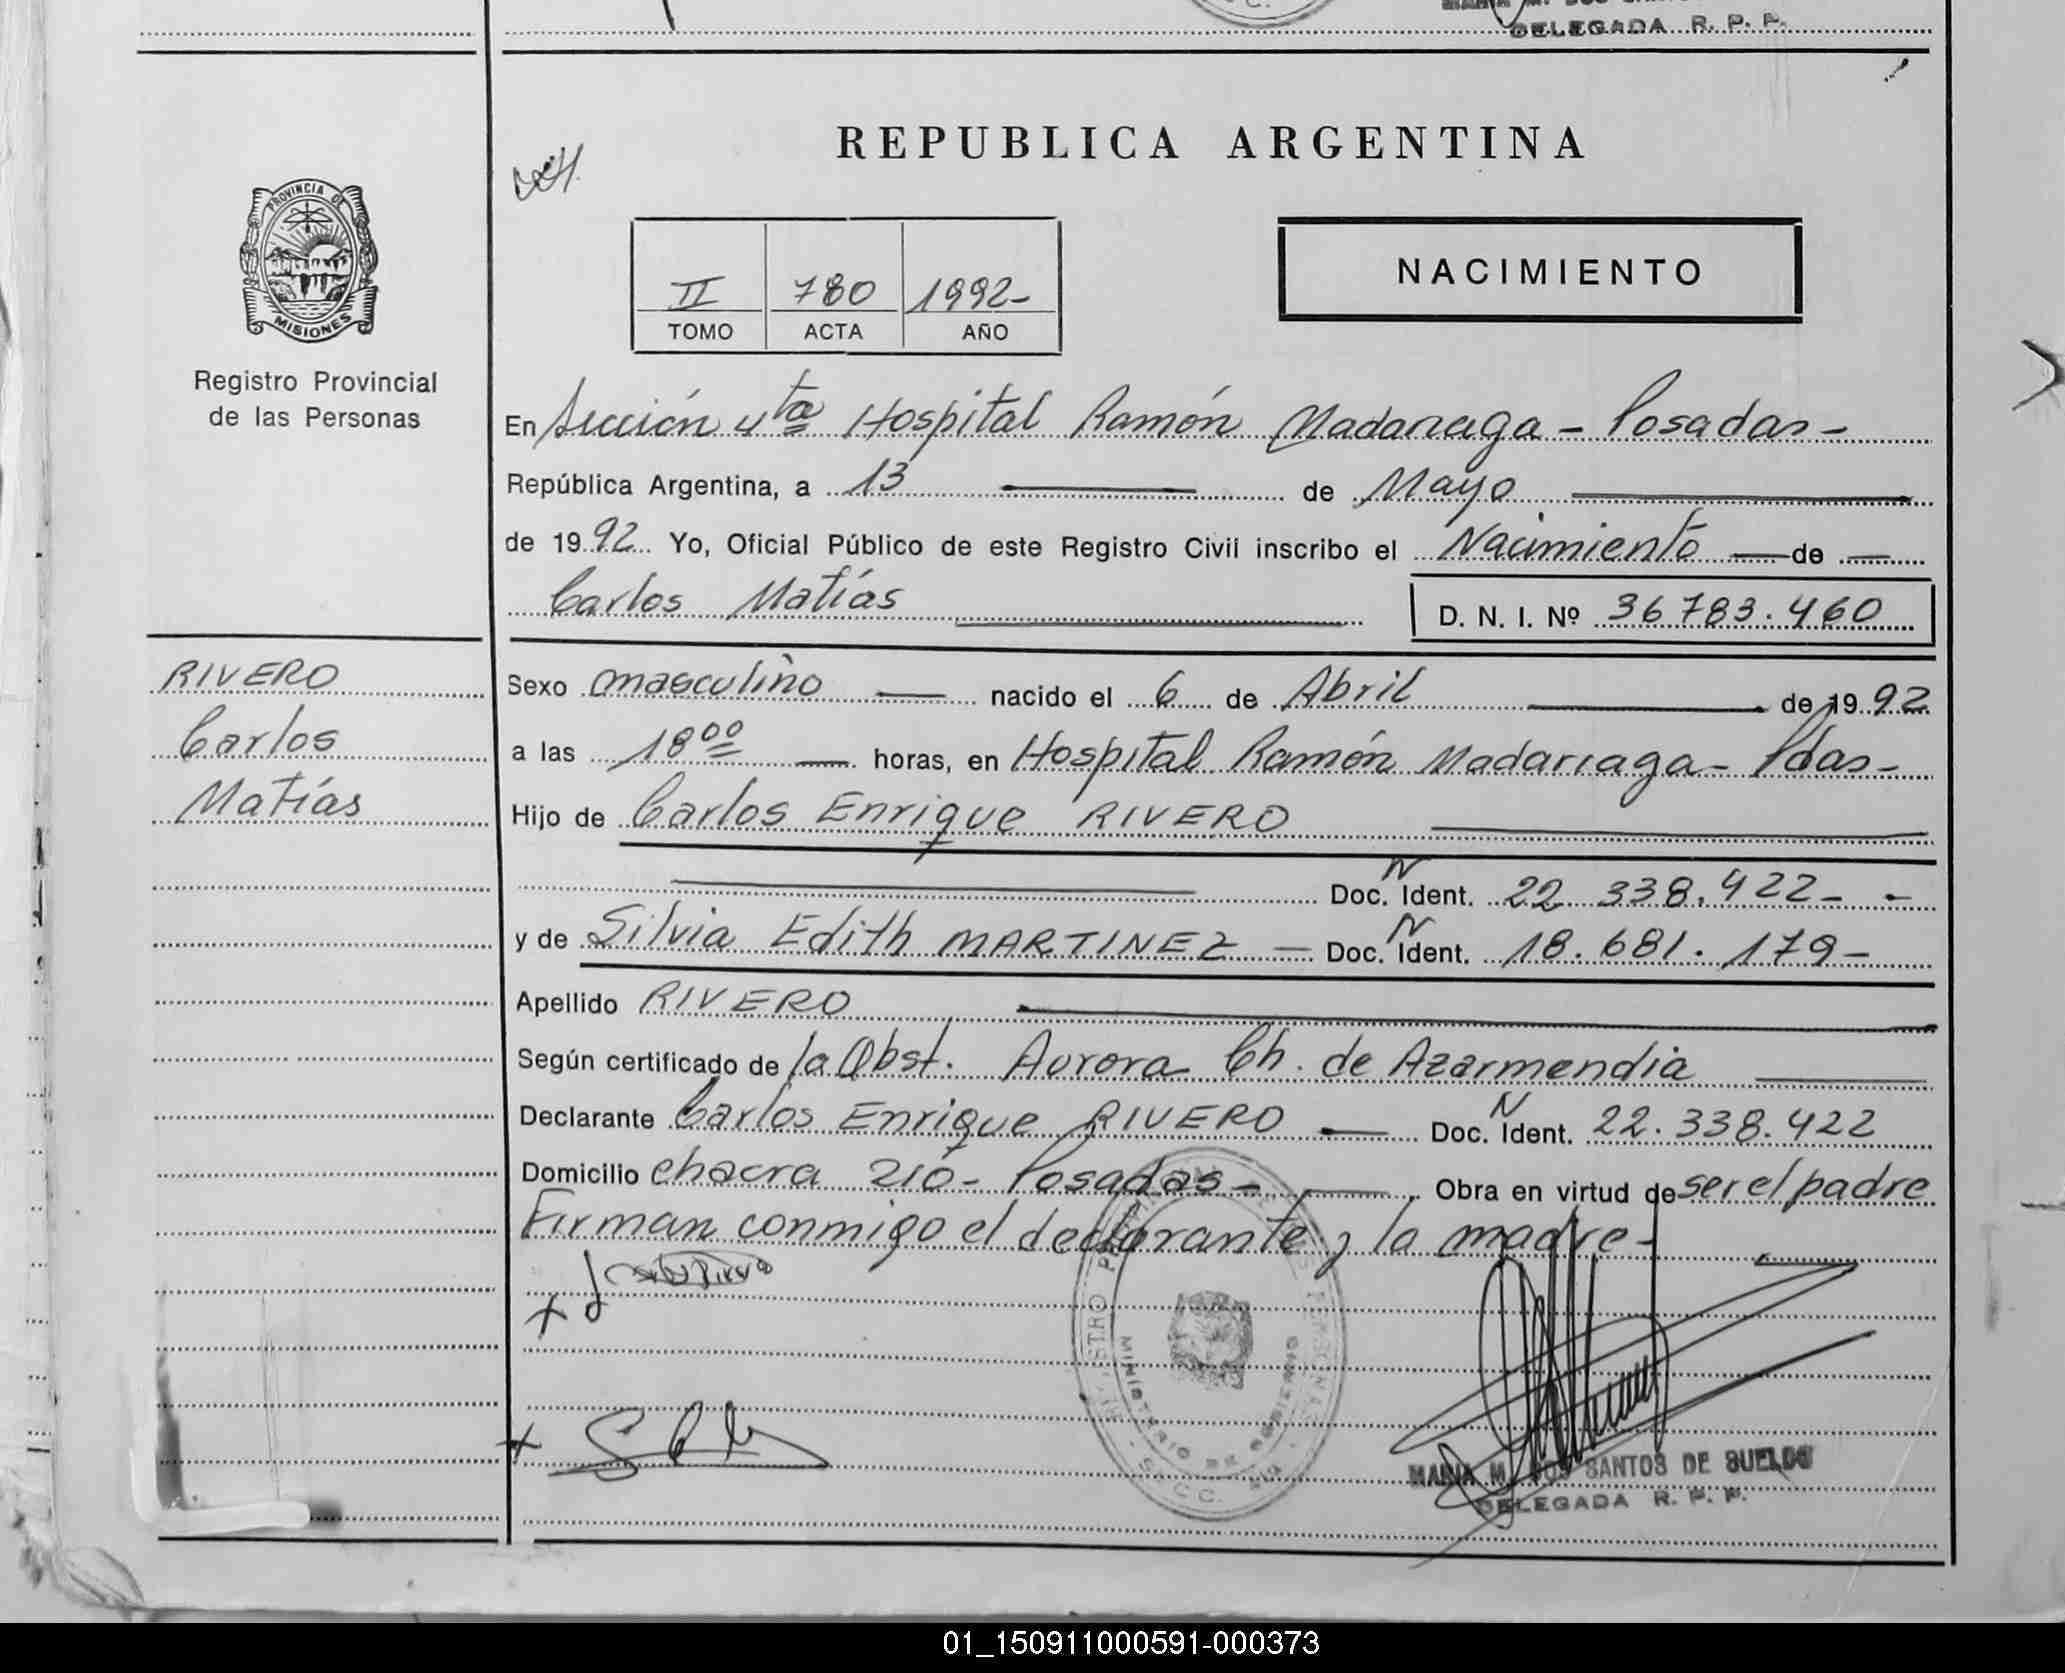 DELEGADA R. P. P.
REPUBLICA ARGENTINA
PROVINCIA DE
MISIONES
Registro Provincial
de las Personas
II 780 1992-
TOMO ACTA AÑO
NACIMIENTO
En Sección 4ta Hospital Ramón Madariaga - Posadas -
República Argentina, a 13 de Mayo
de 1992 Yo, Oficial Público de este Registro Civil inscribo el Nacimiento de
Carlos Matías D. N. I. Nº 36783.460
RIVERO
Carlos
Matías
Sexo masculino nacido el 6 de Abril de 1992
a las 18 00 horas, en Hospital Ramón Madariaga - Pdas -
Hijo de Carlos Enrique RIVERO
N
Doc. Ident. 22 338.422 - -
N
y de Silvia Edith MARTINEZ - Doc. Ident. 18.681.179 -
Apellido RIVERO
Según certificado de la Obst. Aurora Ch. de Azarmendia
N
Declarante Carlos Enrique RIVERO Doc. Ident. 22.338.422
Domicilio chacra 210 - Posadas - Obra en virtud de ser el padre
Firman conmigo el declarante y la madre -
MINISTERIO DE GOBIERNO
MARIA M. DOS SANTOS DE SUELDO
DELEGADA R. P. P.
01_150911000591-000373